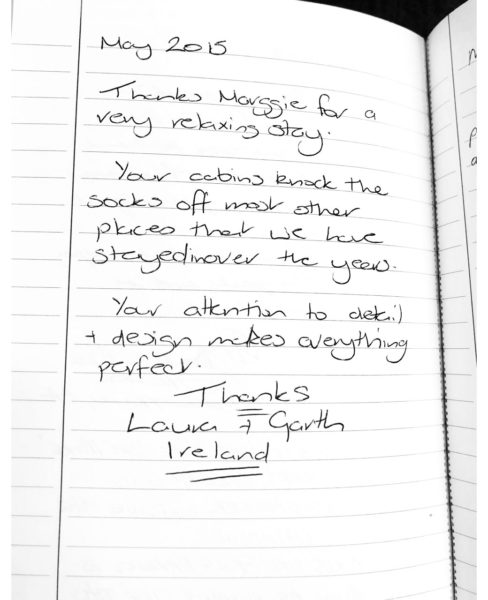 May 2015
Thanks Marggie for a
very relaxing stay.
Your cabins knock the
socks off most other
places that we have
stayedinover the years.
Your attention to detail
+ design makes everything
perfect.
Thanks
Laura + Garth
Ireland